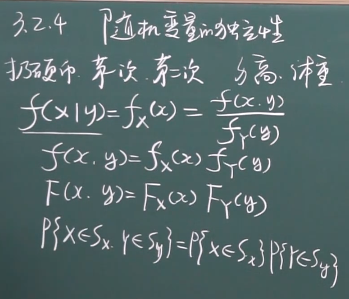 3.2.4 随机变量的独立性
扔硬币 第一次 第二次 身高 体重
f(x|y)=f_X(x)=\frac{f(x.y)}{f_Y(y)}
f(x.y)=f_X(x)f_Y(y)
F(x.y)=F_X(x)F_Y(y)
P{X∈S_x.Y∈S_y}=P{X∈S_x}P{Y∈S_y}